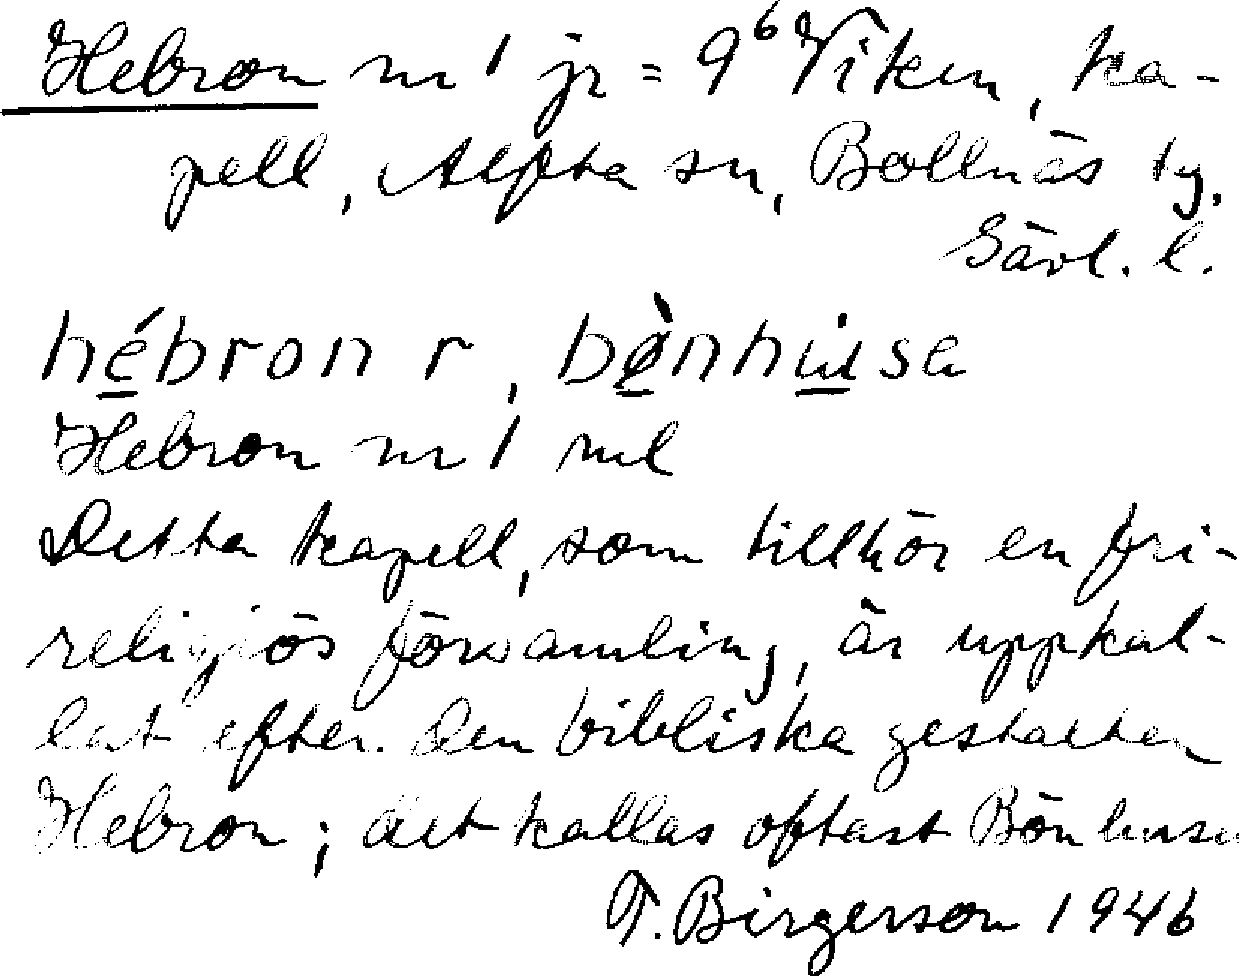 Hebron nr 1 jr = 9⁶ Viken, ka-
pell, Alfta sn, Bollnäs tg,
Gävl. l.
hébron r, bø̀nhusa
Hebron nr 1 rul
Detta kapell, som tillhör en fri-
religiös församling, är uppkal-
lat efter den bibliska gestalten
Hebron; det kallas oftast Bönhusa
T. Birgerson 1946